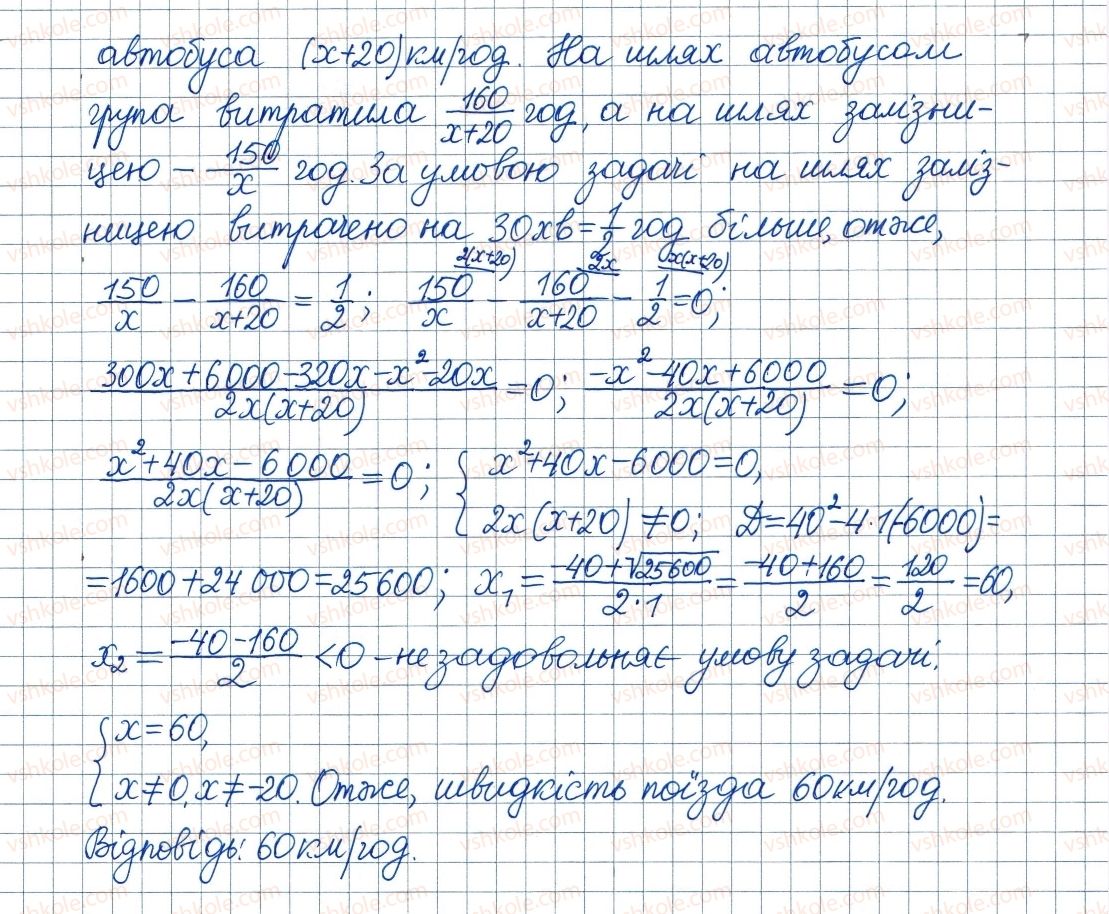 автобуса (x+20) км/год. На шлях автобусом
група витратила 160/(x+20) год, а на шлях залізни-
цею – 150/x год. За умовою задачі на шлях заліз-
ницею витрачено на 30хв = 1/2 год більше, отже,
150/x − 160/(x+20) = 1/2; 2(x+20) 150/x − 2x 160/(x+20) − x(x+20) 1/2 = 0;
(300x+6000−320x−x²−20x)/(2x(x+20)) = 0; (−x²−40x+6000)/(2x(x+20)) = 0;
(x²+40x−6000)/(2x(x+20)) = 0; { x²+40x−6000=0,
2x(x+20)≠0; D=40²−4·1·(−6000)=
=1600+24 000=25600; x₁ = (−40+√25600)/(2·1) = (−40+160)/2 = 120/2 = 60,
x₂ = (−40−160)/2 <0 – не задовольняє умову задачі.
{ x=60,
x≠0, x≠−20. Отже, швидкість поїзда 60км/год.
Відповідь: 60км/год.